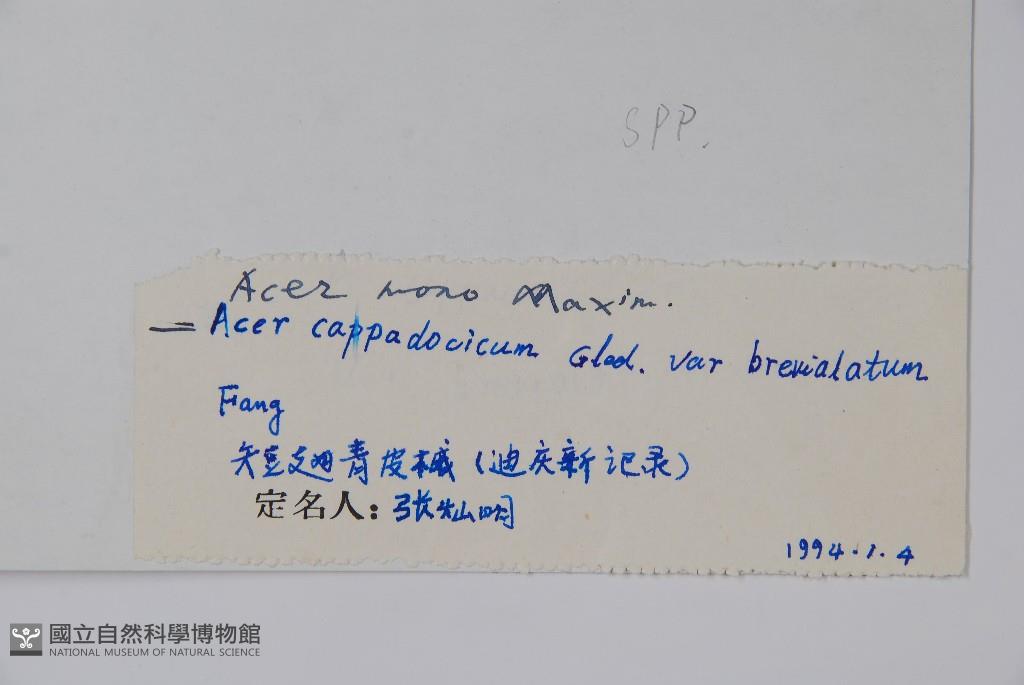 SPP.
Acer mono Maxim.
— Acer cappadocicum Gled. var brevialatum
Fang
短翅青皮槭（迪庆新记录）
定名人：张灿明
1994.1.4
國立自然科學博物館
NATIONAL MUSEUM OF NATURAL SCIENCE